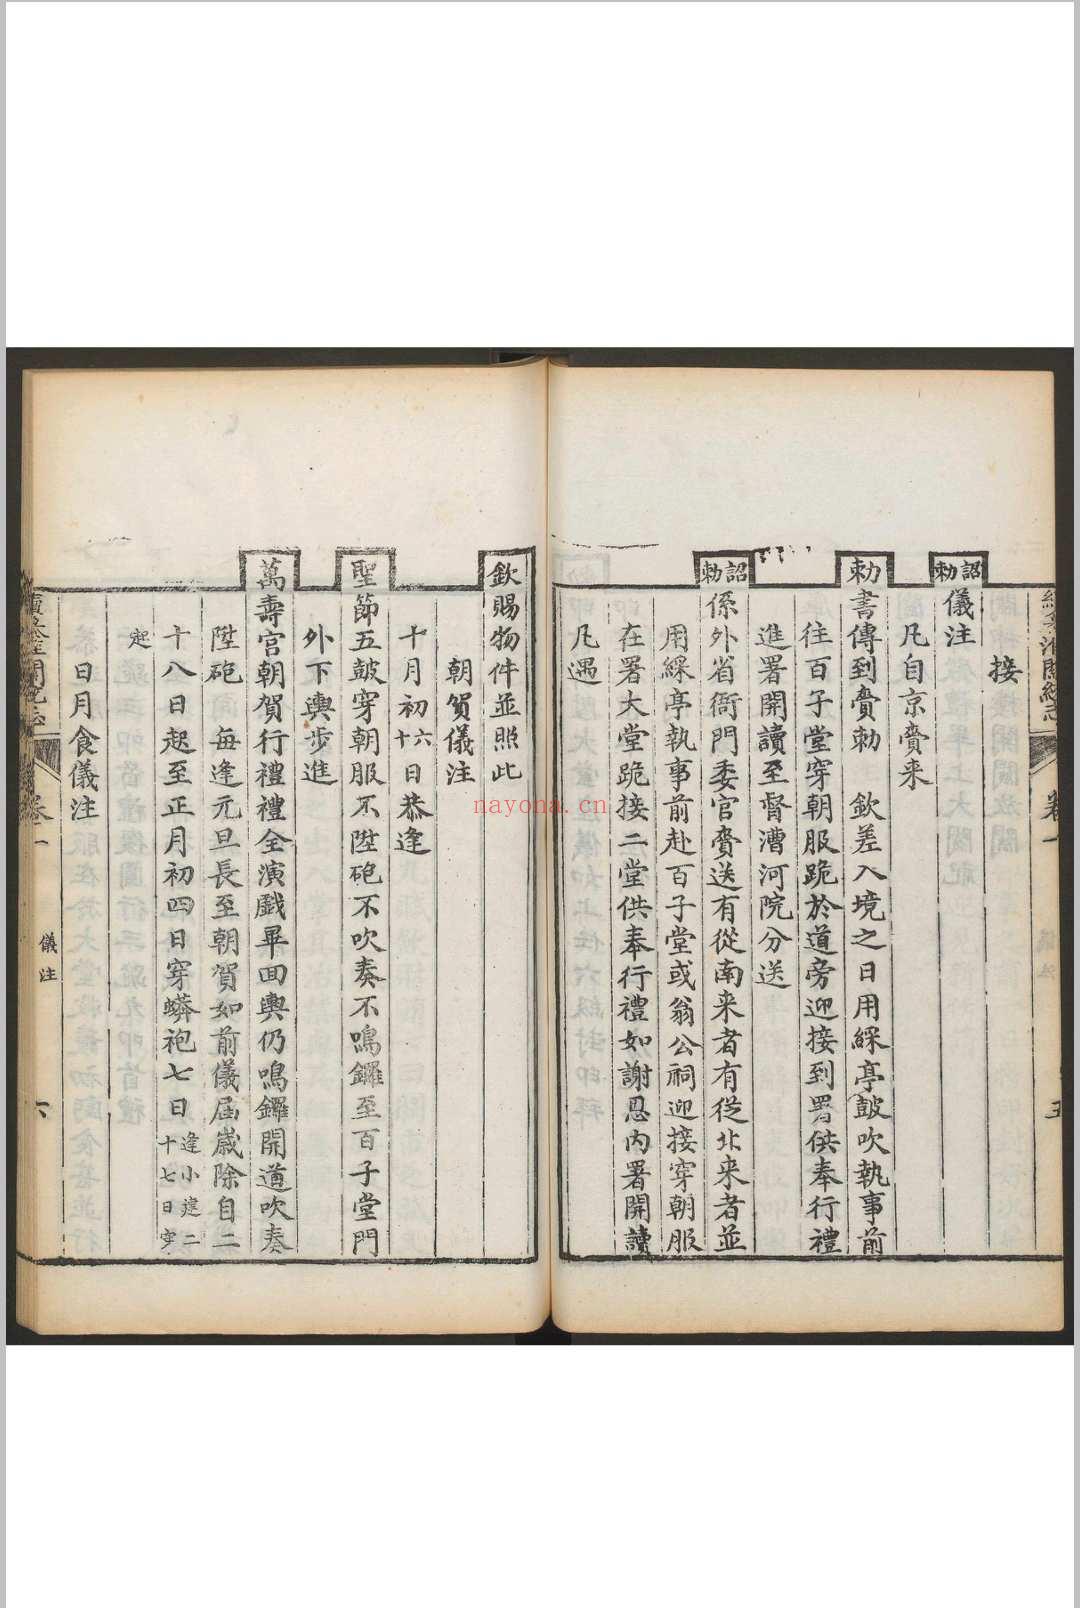 接
詔勅儀注
凡自京賫来
勅書傳到賫勅　欽差入境之日用綵亭鼓吹執事前
往百子堂穿朝服跪於道旁迎接到署供奉行禮
進署開讀至督漕河院分送
詔勅係外省衙門委官賫送有從南来者有從北来者並
用綵亭執事前赴百子堂或翁公祠迎接穿朝服
在署大堂跪接二堂供奉行禮如謝恩内署開讀
凡遇
欽賜物件並照此
朝賀儀注
十月初十六日恭逢
聖節五鼓穿朝服不陞砲不吹奏不鳴鑼至百子堂門
外下輿步進
萬壽宮朝賀行禮禮全演戯畢囬輿仍鳴鑼開道吹奏
陞砲　每逢元旦長至朝賀如前儀届歲除自二
十八日起至正月初四日穿蟒袍七日逢小建二十七日穿
起
日月食儀注
卷一　儀注　六
nayona.cn